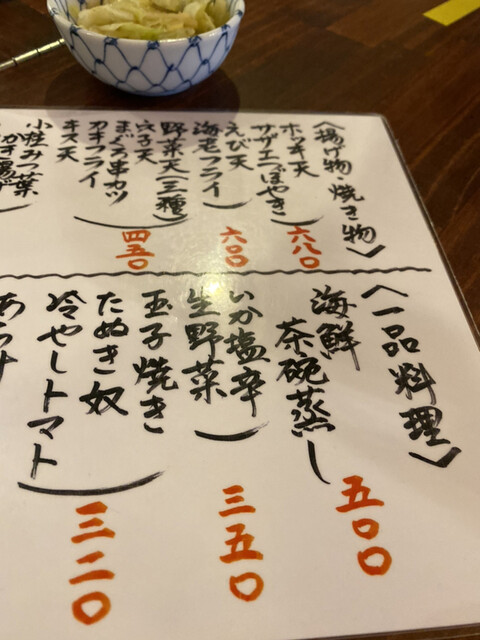 〈揚げ物 焼き物〉
ホッキ天
サザエつぼやき
六八〇
えび天
海老フライ
六〇〇
野菜天(三種)
穴子天
まぐろ串カツ
カキフライ
キス天
四五〇
小柱みつ葉
かき揚げ
〈一品料理〉
海鮮
茶碗蒸し
五〇〇
いか塩辛
生野菜
三五〇
玉子焼き
たぬき奴
冷やしトマト
三二〇